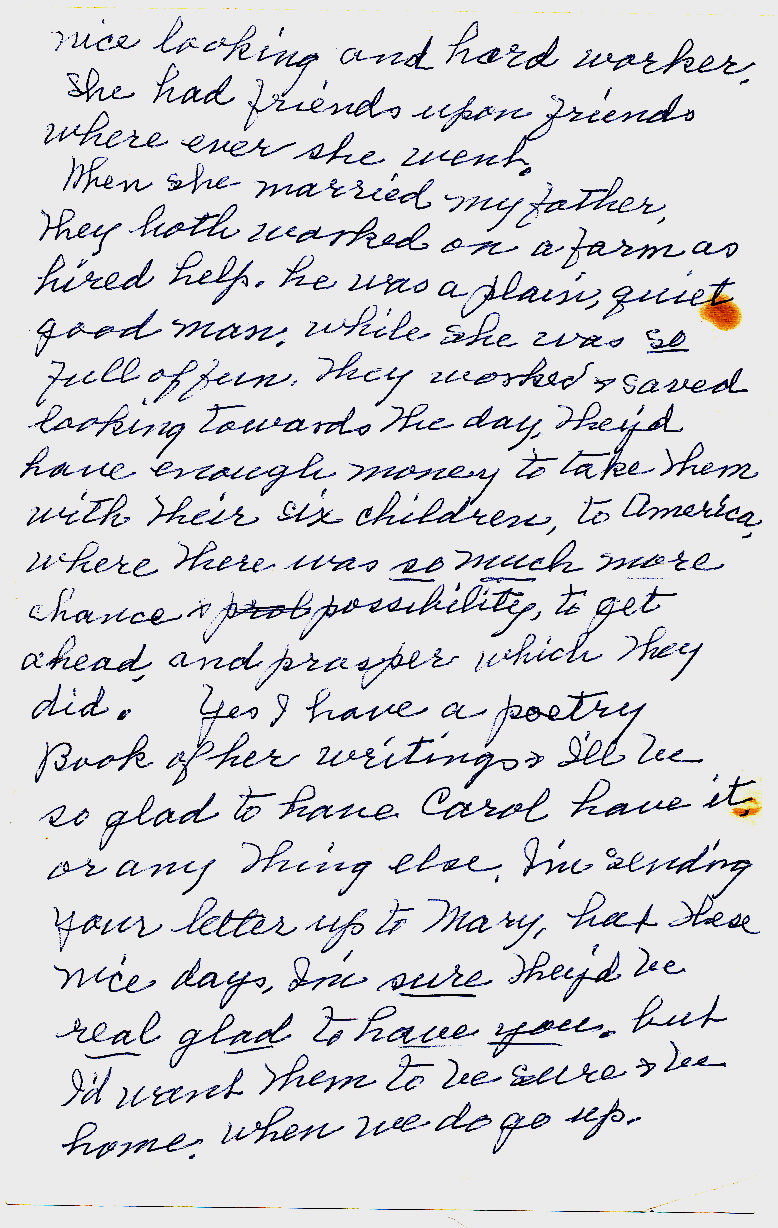 nice looking and hard worker.
She had friends upon friends
where ever she went.
When she married my father,
They both worked on a farm as
hired help. he was a plain, quiet
good man. while she was so
full of fun. They worked & saved
looking towards the day, they'd
have enough money to take them
with their six children, to America,
where there was so much more
chance & prob possibility, to get
ahead, and prosper which they
did. Yes I have a poetry
Book of her writings & I'll be
so glad to have Carol have it,
or any thing else. I'm sending
your letter up to Mary, hat these
nice days, I'm sure they'd be
real glad to have you. but
I'd want them to be sure & be
home. when we do go up.